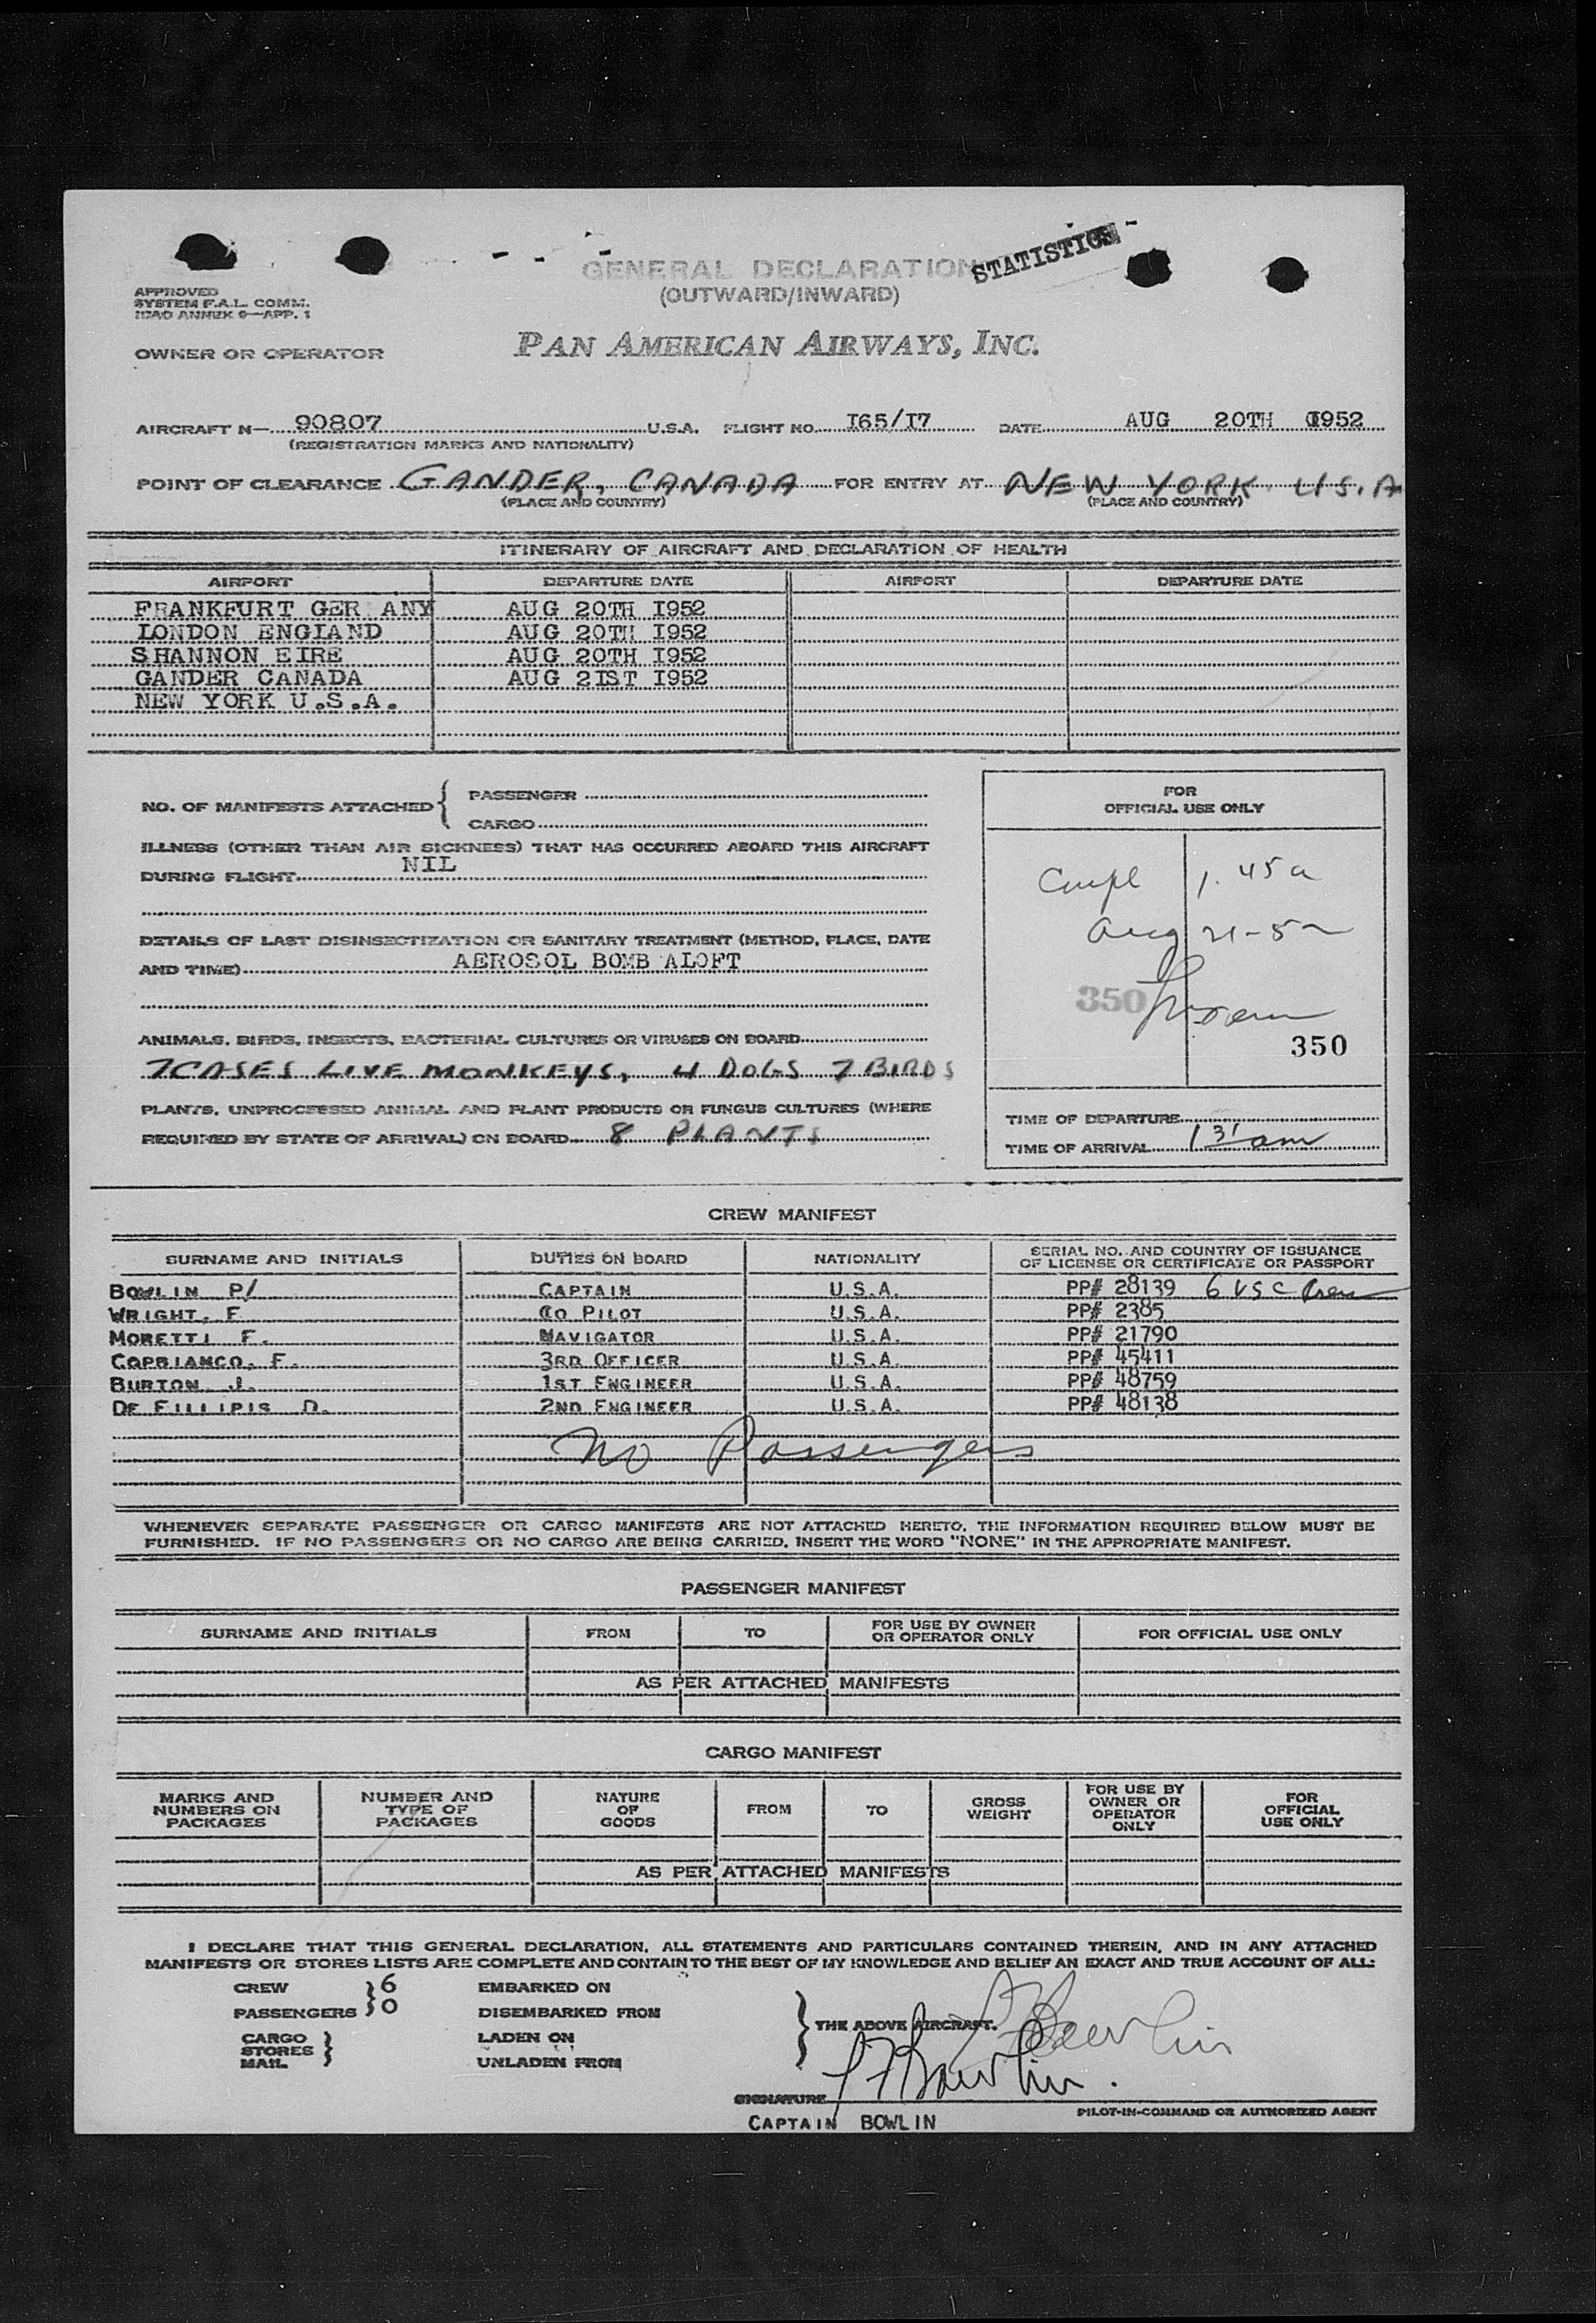 GENERAL DECLARATION
STATISTICS
(OUTWARD/INWARD)
APPROVED
SYSTEM F.A.L. COMM.
ICAO ANNEX 9—APP. 1
OWNER OR OPERATOR PAN AMERICAN AIRWAYS, INC.
AIRCRAFT N— 90807 U.S.A. FLIGHT NO. I65/I7 DATE AUG 20TH I952
(REGISTRATION MARKS AND NATIONALITY)
POINT OF CLEARANCE GANDER, CANADA FOR ENTRY AT NEW YORK U.S.A
(PLACE AND COUNTRY) (PLACE AND COUNTRY)
ITINERARY OF AIRCRAFT AND DECLARATION OF HEALTH
AIRPORT DEPARTURE DATE AIRPORT DEPARTURE DATE
FRANKFURT GER ANY AUG 20TH I952
LONDON ENGLAND AUG 20TH I952
SHANNON EIRE AUG 20TH I952
GANDER CANADA AUG 2IST I952
NEW YORK U.S.A.
NO. OF MANIFESTS ATTACHED { PASSENGER
CARGO
ILLNESS (OTHER THAN AIR SICKNESS) THAT HAS OCCURRED ABOARD THIS AIRCRAFT
DURING FLIGHT NIL
DETAILS OF LAST DISINSECTIZATION OR SANITARY TREATMENT (METHOD, PLACE, DATE
AND TIME) AEROSOL BOMB ALOFT
ANIMALS, BIRDS, INSECTS, BACTERIAL CULTURES OR VIRUSES ON BOARD
7 CASES LIVE MONKEYS, 4 DOGS 7 BIRDS
PLANTS, UNPROCESSED ANIMAL AND PLANT PRODUCTS OR FUNGUS CULTURES (WHERE
REQUIRED BY STATE OF ARRIVAL) ON BOARD 8 PLANTS
FOR
OFFICIAL USE ONLY
1.45a
Aug 21-52
350
350
TIME OF DEPARTURE
TIME OF ARRIVAL 1 31 am
CREW MANIFEST
SURNAME AND INITIALS DUTIES ON BOARD NATIONALITY SERIAL NO. AND COUNTRY OF ISSUANCE
OF LICENSE OR CERTIFICATE OR PASSPORT
BOWLIN P/ CAPTAIN U.S.A. PP# 28139 6 USC Crew
WRIGHT, F CO PILOT U.S.A. PP# 2385
MORETTI F. NAVIGATOR U.S.A. PP# 21790
COPBIANCO, F. 3RD OFFICER U.S.A. PP# 45411
BURTON J. 1ST ENGINEER U.S.A. PP# 48759
DE FILLIPIS D. 2ND ENGINEER U.S.A. PP# 48138
No Passengers
WHENEVER SEPARATE PASSENGER OR CARGO MANIFESTS ARE NOT ATTACHED HERETO, THE INFORMATION REQUIRED BELOW MUST BE
FURNISHED. IF NO PASSENGERS OR NO CARGO ARE BEING CARRIED, INSERT THE WORD "NONE" IN THE APPROPRIATE MANIFEST.
PASSENGER MANIFEST
SURNAME AND INITIALS FROM TO FOR USE BY OWNER
OR OPERATOR ONLY FOR OFFICIAL USE ONLY
AS PER ATTACHED MANIFESTS
CARGO MANIFEST
MARKS AND
NUMBERS ON
PACKAGES
NUMBER AND
TYPE OF
PACKAGES
NATURE
OF
GOODS
FROM
TO
GROSS
WEIGHT
FOR USE BY
OWNER OR
OPERATOR
ONLY
FOR
OFFICIAL
USE ONLY
AS PER ATTACHED MANIFESTS
I DECLARE THAT THIS GENERAL DECLARATION, ALL STATEMENTS AND PARTICULARS CONTAINED THEREIN, AND IN ANY ATTACHED
MANIFESTS OR STORES LISTS ARE COMPLETE AND CONTAIN TO THE BEST OF MY KNOWLEDGE AND BELIEF AN EXACT AND TRUE ACCOUNT OF ALL:
CREW } 6 EMBARKED ON
PASSENGERS } 0 DISEMBARKED FROM
THE ABOVE AIRCRAFT.
CARGO
STORES }
MAIL
LADEN ON
UNLADEN FROM
PF Bowlin
SIGNATURE PF Bowlin.
CAPTAIN BOWLIN
PILOT-IN-COMMAND OR AUTHORIZED AGENT